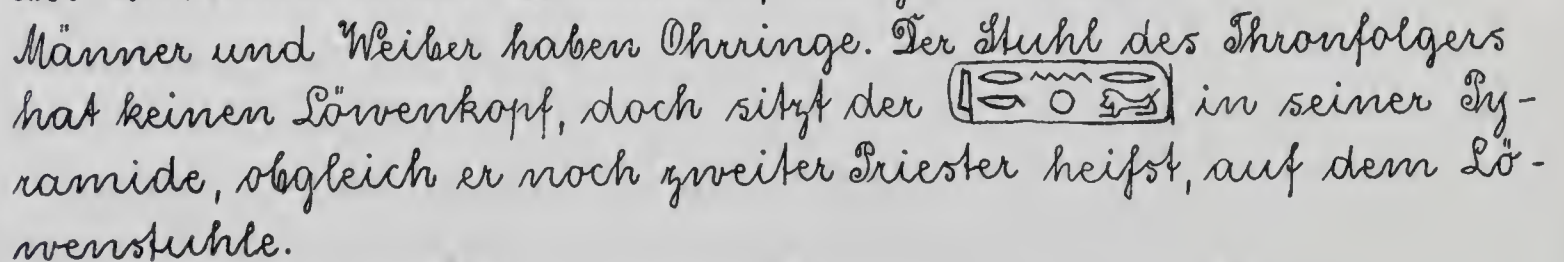 Männer und Weiber haben Ohrringe. Der Stuhl des Thronfolgers
hat keinen Löwenkopf, doch sitzt der in seiner Py-
ramide, obgleich er noch zweiter Priester heiſst, auf dem Lö-
wenstuhle.